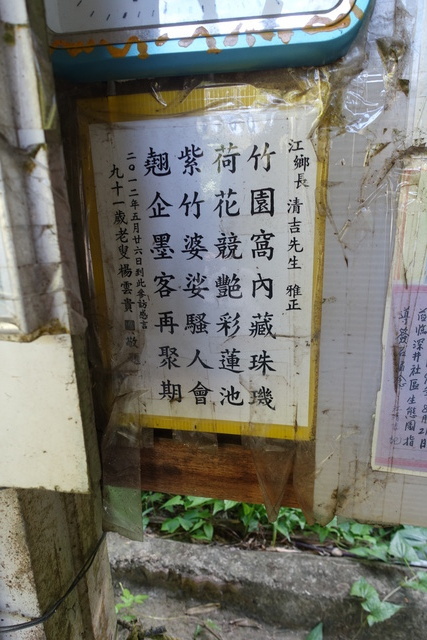 江鄉長 清吉先生 雅正
竹園窩內藏珠璣
荷花競艷彩蓮池
紫竹婆娑騷人會
翹企墨客再聚期
二〇一二年五月廿六日到此參訪感言
九十一歲老叟楊雲貴
蒞臨深井社區生態園指